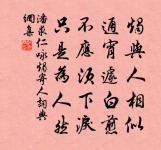 燭與人相似
通宵遽白煎
不應須下淚
只是為人然
潘求仁詠燭寄人詞典
網集